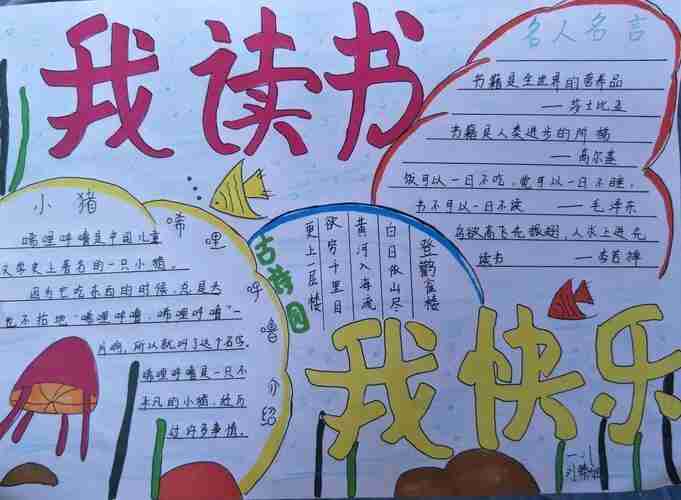 我读书
名人名言
书籍是全世界的营养品
——莎士比亚
书籍是人类进步的阶梯
——高尔基
饭可以一日不吃,觉可以一日不睡,
书不可以一日不读 ——毛泽东
鸟欲高飞先振翅,人求上进先
读书 ——李苦禅
小猪
唏哩呼噜介绍
唏哩呼噜是中国儿童
文学史上著名的一只小猪。
因为它吃东西的时候,总是夫
也不抬地“唏哩呼噜,唏哩呼噜”一
片响,所以就叫了这个名字。
唏哩呼噜是一只不
平凡的小猪,经历
过许多事情。
古诗园
登鹳雀楼
白日依山尽
黄河入海流
欲穷千里目
更上一层楼
我快乐